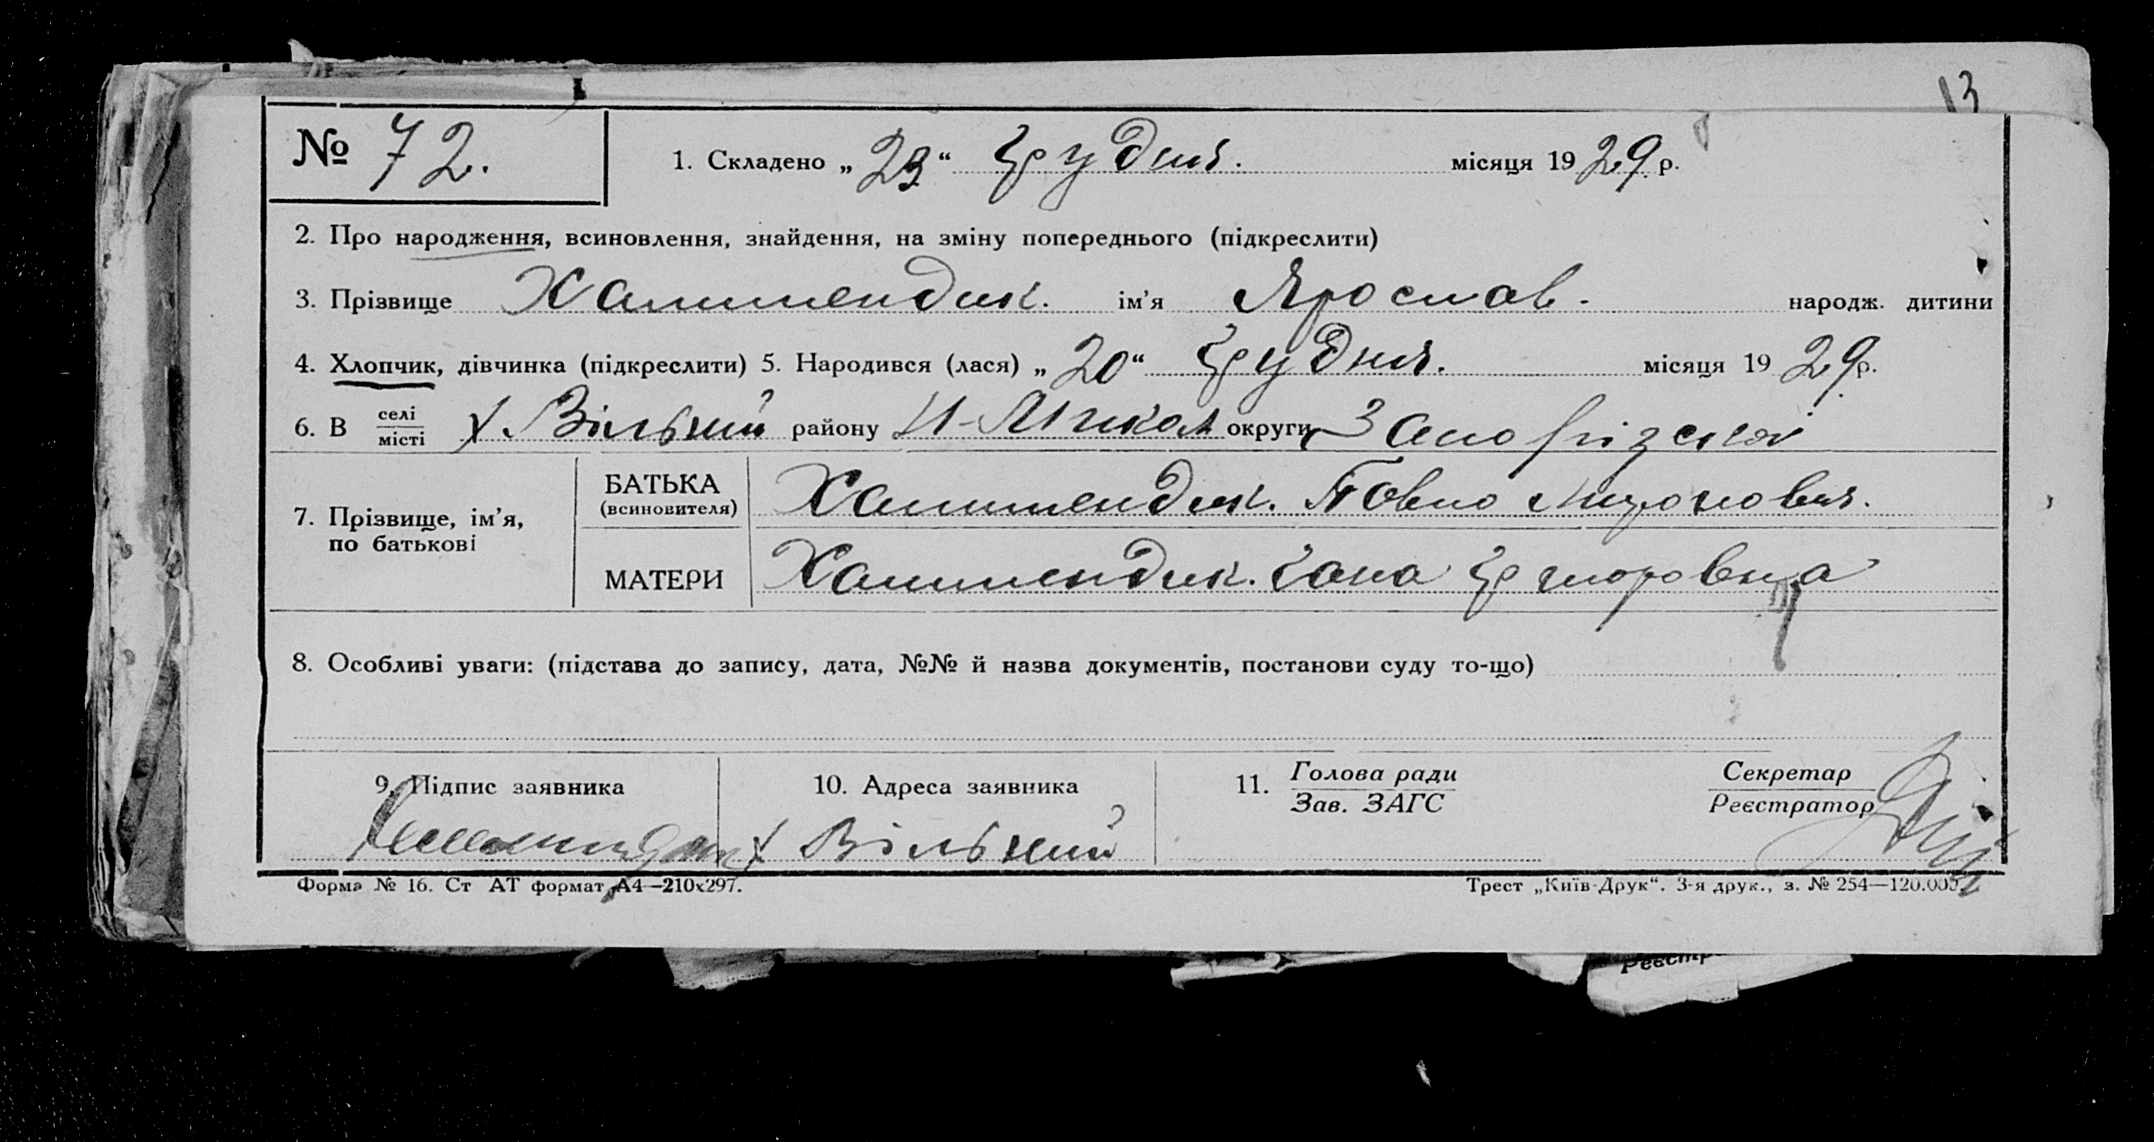 13
№ 72.
1. Складено „23“ Грудня. місяця 1929 р.
2. Про народження, всиновлення, знайдення, на зміну попереднього (підкреслити)
3. Прізвище ім’я Ярослав. народж. дитини
4. Хлопчик, дівчинка (підкреслити) 5. Народився (лася) „20“ Грудня. місяця 1929 р.
6. В селі/місті х Вільний району округи Запорізької
7. Прізвище, ім’я, по батькові
БАТЬКА (всиновителя) Павло
МАТЕРИ Ганна Григоровна
8. Особливі уваги: (підстава до запису, дата, №№ й назва документів, постанови суду то-що)
9. Підпис заявника
10. Адреса заявника
х Вільний
11. Голова ради
Зав. ЗАГС
Секретар
Реєстратор
Форма № 16. Ст АТ формат А4—210х297.
Трест „Київ-Друк“. 3-я друк., з. № 254—120.000